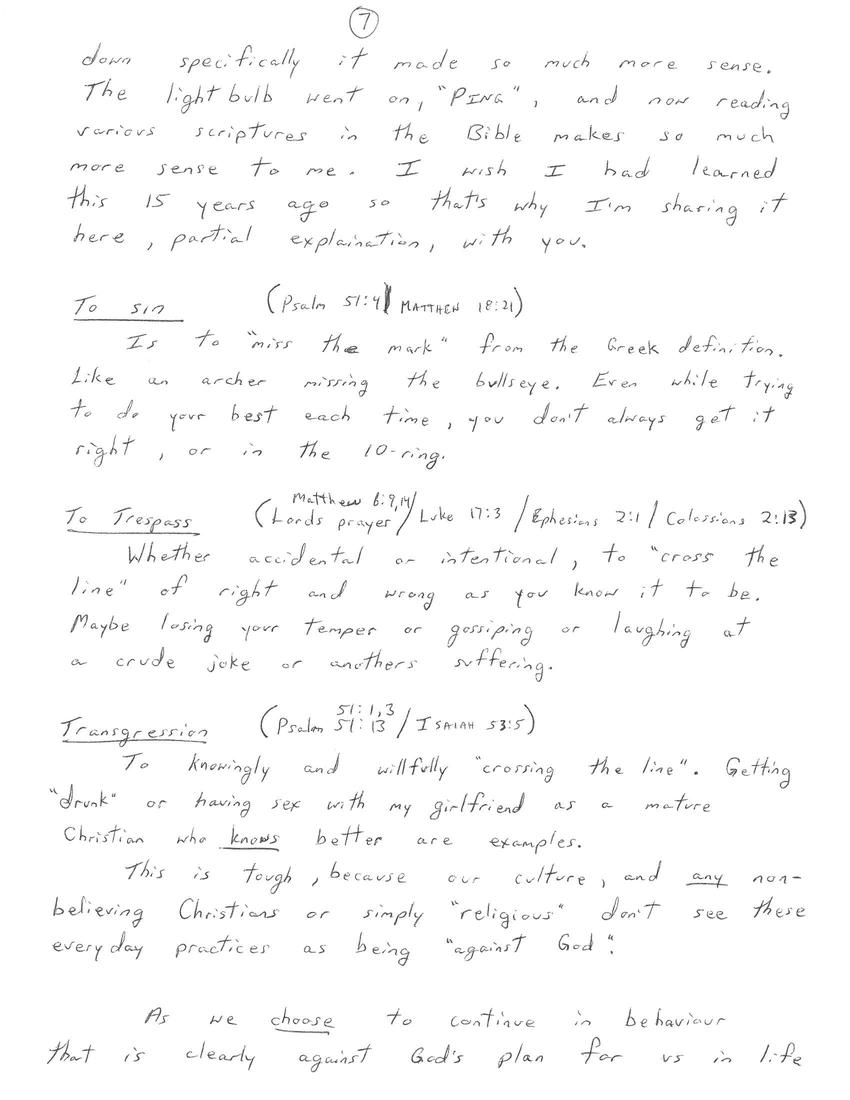 7
down specifically it made so much more sense.
The lightbulb went on, "PING", and now reading
various scriptures in the Bible makes so much
more sense to me. I wish I had learned
this 15 years ago so that's why I'm sharing it
here, partial explaination, with you.
To sin (Psalm 51:4 / MATTHEW 18:21)
Is to "miss the mark" from the Greek definition.
Like an archer missing the bullseye. Even while trying
to do your best each time, you don't always get it
right, or in the 10-ring.
Matthew 6:9,14/
To Trespass (Lords prayer / Luke 17:3 / Ephesians 2:1 / Colossians 2:13)
Whether accidental or intentional, to "cross the
line" of right and wrong as you know it to be.
Maybe losing your temper or gossiping or laughing at
a crude joke or anothers suffering.
51:1,3
Transgression (Psalm 51:13 / ISAIAH 53:5)
To knowingly and willfully "crossing the line". Getting
"drunk" or having sex with my girlfriend as a mature
Christian who knows better are examples.
This is tough, because our culture, and any non-
believing Christians or simply "religious" don't see these
everyday practices as being "against God".
As we choose to continue in behaviour
that is clearly against God's plan for us in life